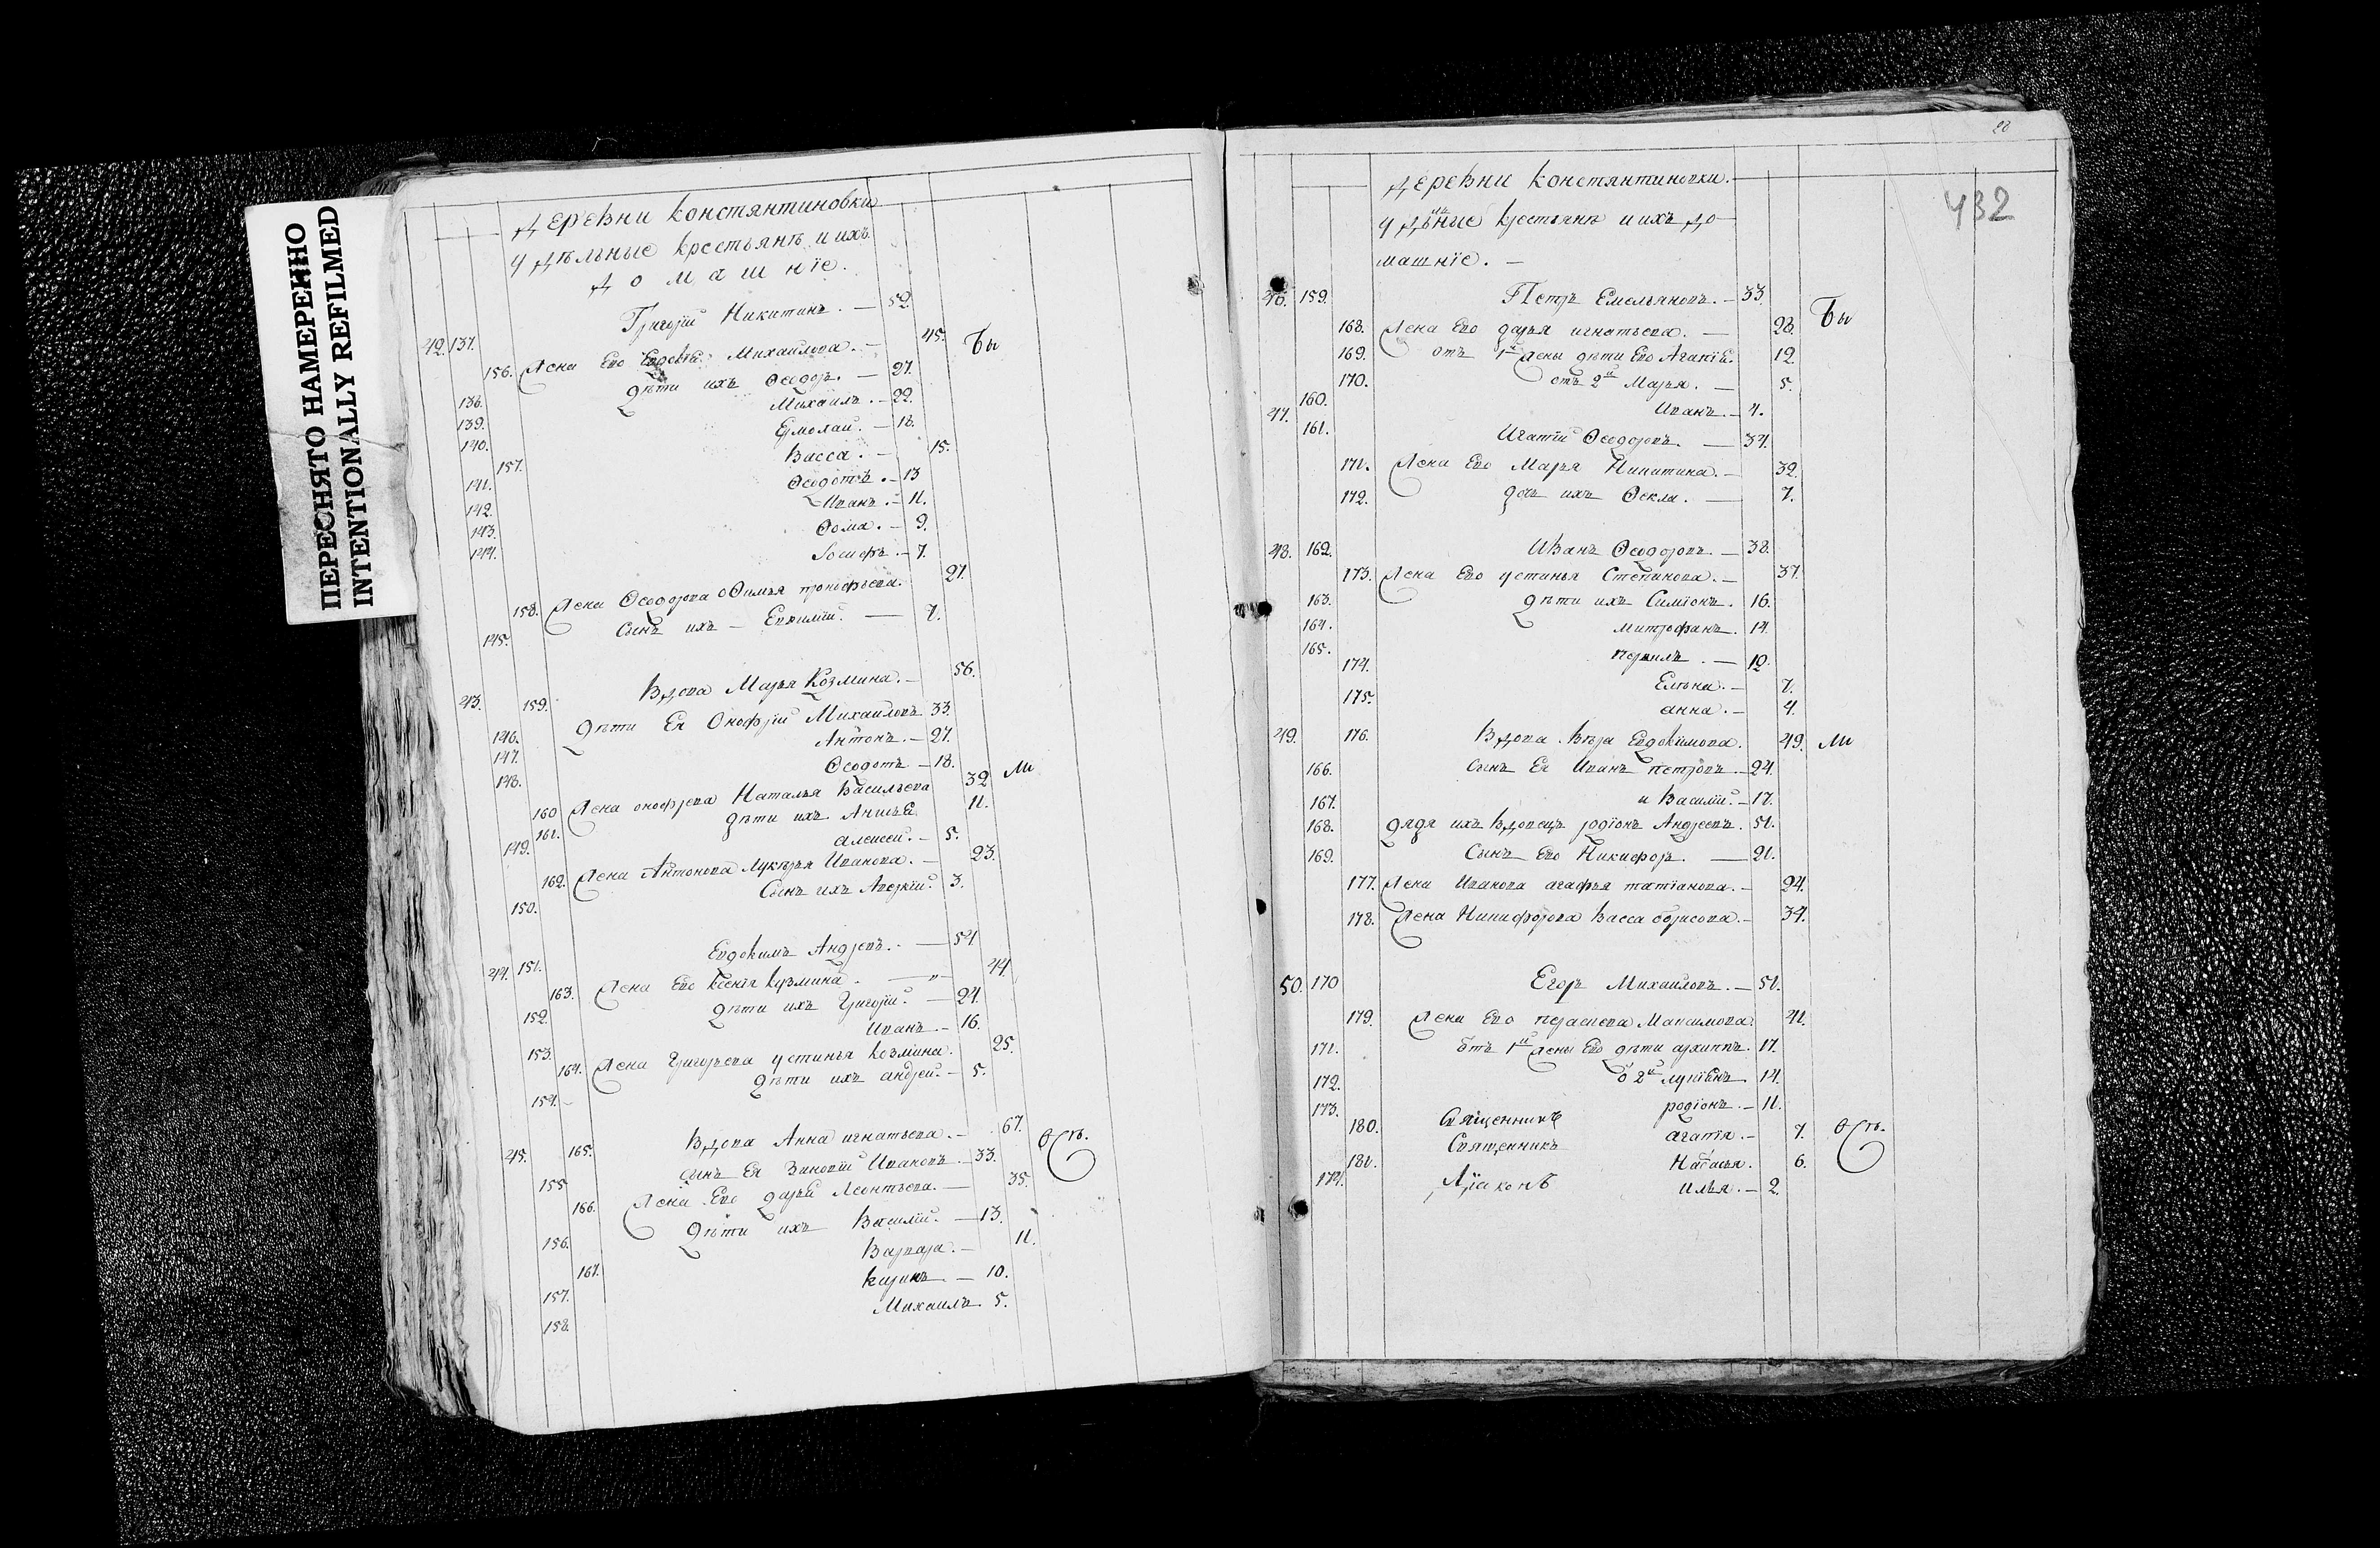 ПЕРЕСНЯТО НАМЕРЕННО
INTENTIONALLY REFILMED
деревни констянтиновки
удѣльные крестьянъ и ихъ
домашніе.
42. 137. Григорій Никитинъ. — 52.
156. Жена Его Михаилова. — 45. Бы
138. дѣти ихъ Ѳеодоръ. — 27.
139. Михаилъ. — 22.
140. Ермолай. — 18.
157. Васса. — 15.
141. Ѳеодотъ. — 13
142. Иванъ. — 11.
143. Ѳома. — 9.
144. Іосифъ. — 7.
158. Жена Ѳеодорова 27.
145. Сынъ их — Евѳимій. — 7.
43. 159. Вдова Марья Козмина. — 56.
146. дѣти Ея Онофрій Михаиловъ 33.
147. Антонъ. — 27.
148. Ѳеодотъ — 18.
160 Жена онофрева Наталья Васильева 32 ли
161. дѣти ихъ Анисья 11.
149. алексей. — 5.
162. Жена Антонова Лукерья Иванова. — 23.
150. Сынъ ихъ Аверкій. 3.
44. 151. Евдокимъ Андревъ. — 54
163. Жена Его Ксенія Кузмина. — 44.
152. дѣти ихъ Григорій. — 24.
153. Иванъ. — 16.
164. Жена Григорьева устинья козмина. 25.
154. дѣти ихъ андрей. — 5.
45. 165. Вдова Анна игнатьева. — 67.
155 сынъ Ея Зиновій Ивановъ. — 33.
166. Жена Его дарья Леонтьева. — 35.
156. дѣти ихъ Василій. — 13.
167. Варвара. — 11.
157. — 10.
158. Михаилъ. 5.
28
432
деревни констянтиновки.
удѣльные крестьянъ и ихъ до
машніе. —
46. 159. Петръ Емельяновъ. — 33.
168. Жена Его дарья игнатьева. — 28. Бы
169. отъ 1й жены дѣти Его Агапія. 12
170. отъ 2й Марья. — 5.
160. Иванъ. — 4.
47. 161. Игатій Ѳеодоровъ. — 34.
171. Жена Его Марья Никитина. — 32.
172. дочь ихъ Ѳекла. — 7.
48. 162. Иванъ Ѳеодоровъ. — 38.
173. Жена Его устинья Степанова. — 37.
163. дѣти ихъ Симіонъ. 16.
164. митрофанъ. 14.
165. — 12.
174. Елена. — 7.
175. анна. — 4.
49. 176. Вдова Вера Евдокимова. 49. ли
166. сынъ Ея Иванъ петровъ. — 24.
167. и Василій. — 17.
168. дядя ихъ вдовецъ родіонъ Андреевъ. 51.
169. Сынъ Его Никифоръ. — 21.
177. Жена Иванова агафья — 24.
178. Жена Никифорова Васса борисова. — 34.
50. 170 Егоръ Михаиловъ. — 51.
179. Жена Его Максимова. 41.
171. отъ 1й жены Его дѣти архиппъ. 17.
172. о 2й лукіянъ. 14.
173. родіонъ. — 11.
180. Священникъ агапія. — 7.
181. Священникъ Настасья. 6.
174. Діаконъ илья. — 2.